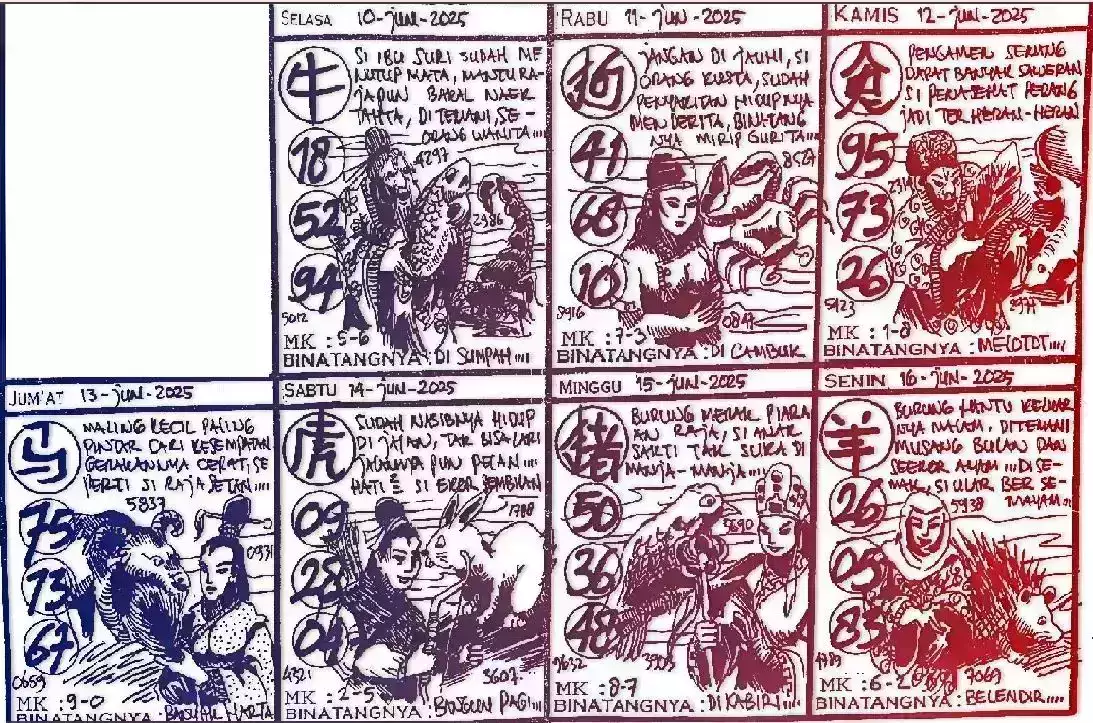 SELASA 10-JUN-2025
牛
SI IBU SURI SUDAH ME
NUTUP MATA, MANTU RA-
JAPUN BAKAL NAEK
TAHTA, DITEMANI, SE-
ORANG WANITA....
18
4297
52
2986
94
5012
MK : 5-6
BINATANGNYA : DI SUMPAH....
RABU 11-JUN-2025
狗
JANGAN DI JAUHI, SI
ORANG KUSTA, SUDAH
PENYAKITAN HIDUPNYA
MENDERITA, BINATANG
NYA MIRIP GURITA....
41
8527
68
10
8916
0847
MK : 7-3
BINATANGNYA : DI CAMBUK
KAMIS 12-JUN-2025
PENGAMEN SENANG
DAPAT BANYAK SAWERAN
SI PENASEHAT PERANG
JADI TERHERAN-HERAN
95
73
26
5423
MK : 1-8
BINATANGNYA : MELOTOT....
JUM'AT 13-JUN-2025
马
MALING KECIL PALING
PINTAR CARI KESEMPATAN
GERAKANNYA CEPAT, SE
PERTI SI RAJA SETAN....
5837
75
0931
73
67
MK : 9-0
BINATANGNYA : HARTA
SABTU 14-JUN-2025
虎
SUDAH NASIBNYA HIDUP
DI JALAN, TAK BISA LARI
JALANNYA PUN PELAN....
HATI² SI EKOR SEMBILAN
09
28
04
4321
3607
MK : 2-5
BINATANGNYA : BANGUN PAGI....
MINGGU 15-JUN-2025
猪
BURUNG MERAK PIARA
AN RAJA, SI ANAK
SAKTI TAK SUKA DI
MANJA-MANJA....
50
5690
36
48
9632
MK : 8-7
BINATANGNYA : DI KABIRI....
SENIN 16-JUN-2025
羊
BURUNG HANTU KELUAR
NYA MALAM, DITEMANI
MUSANG BULAN DAN
SEEKOR AYAM.... DI SE-
MAK, SI ULAR BER SE-
MAYAM....
26
5938
05
83
7069
MK : 6-2
BINATANGNYA : BELENDIR....